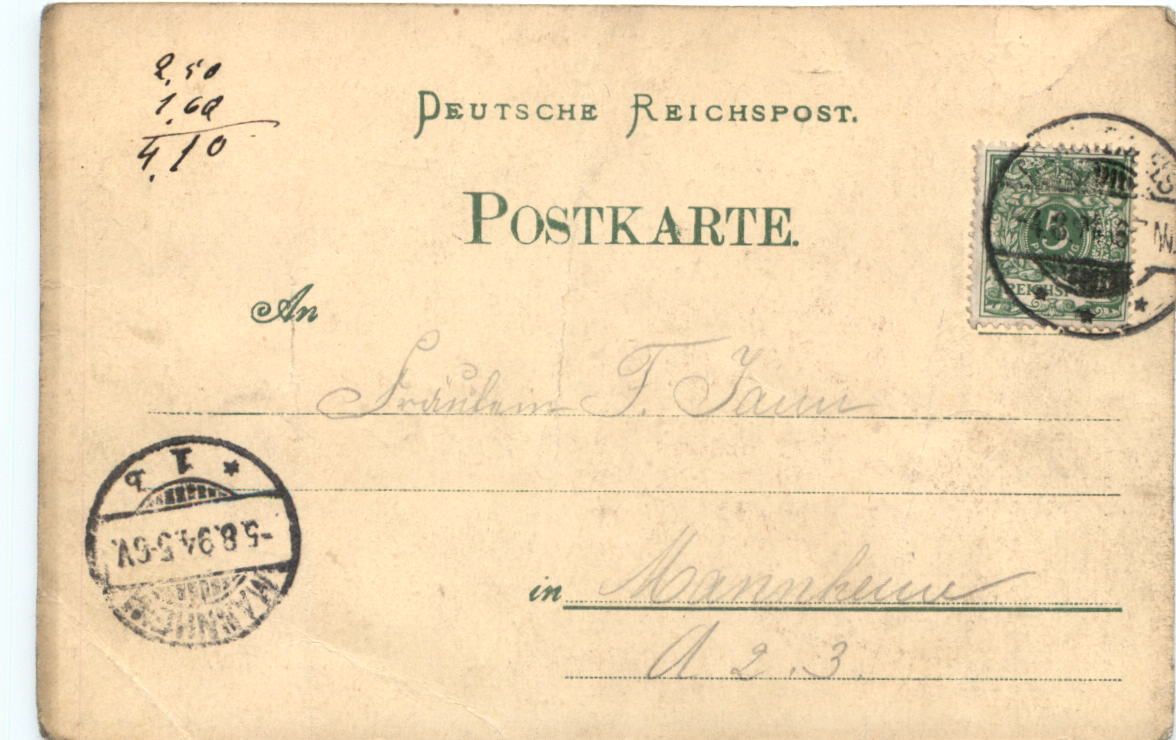 2.50
1.60
4.10
DEUTSCHE REICHSPOST.
POSTKARTE.
5
An
Fräulein F. Jann
in Mannheim
A 2. 3.
1 b
-5.8.94.5-6V.
MANNHEIM